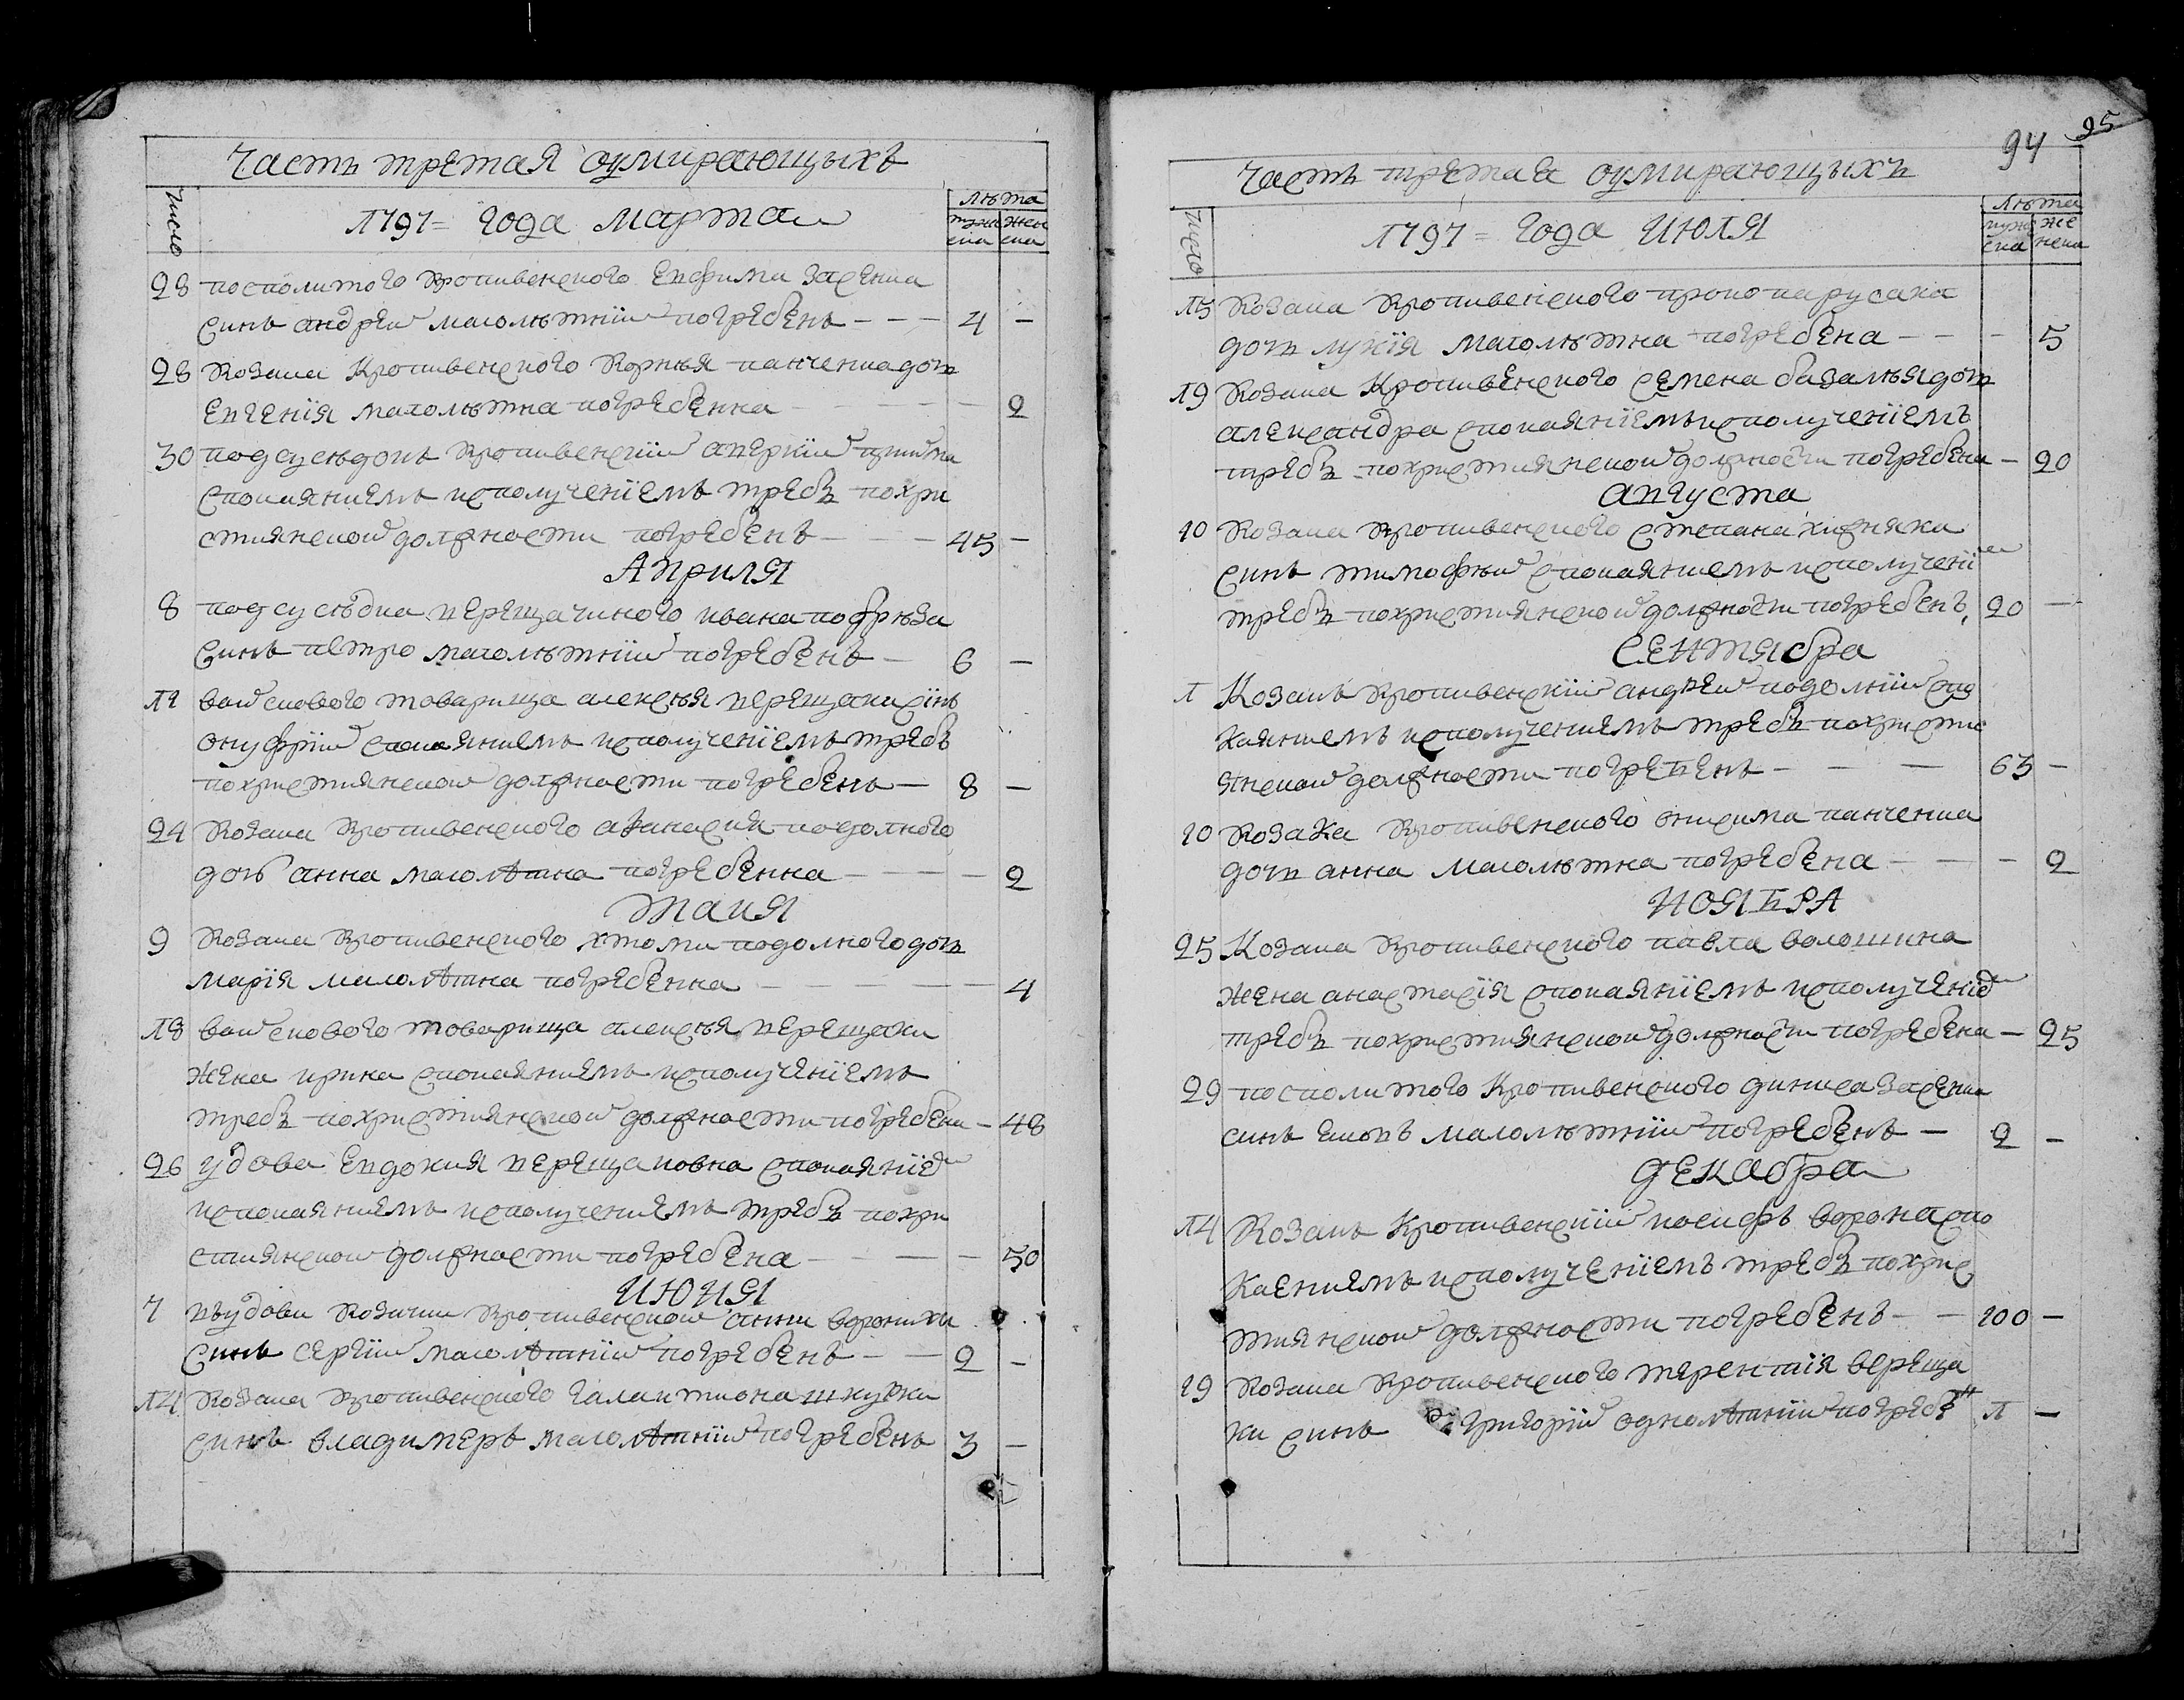 Часть третая оумирающыхъ
Число
1797= Года Марта
Люта
мужеска женска
28 посполитого Кропивенского Евфима Засенка
синъ андрей малолѣтнїй погребенъ - - - 4 -
28 Козака Кропивенского Корнѣя панченка дочь
Евгенїя малолѣтна погребенна - - - 2
30 подсусѣдокъ Кропивенскїй аверкїй
спокаяниемъ исполученїемъ требъ похри
стиянской должности погребенъ - - - 45 -
Априля
8 подсусѣдка верещачиного ивана
синъ петро малолѣтнїй погребенъ - 6 -
12 войскового товарища алексѣя верещаки сїнъ
онуфрїй спокаяниемъ исполученїемъ требъ
похристиянской должности погребенъ - 8 -
24 Козака Кропивенского афанасия подолного
дочь анна малолѣтна погребенна - - - 2
Маия
9 Козака Кропивенского хтоми подолного дочь
Марїя малолѣтна погребенна - - - 4
13 войскового товарища алексѣя верещаки
жена ирина спокаяниемъ исполученїемъ
требъ похристиянской должности погребена - 48
26 удова Евдокия верещаковна споканїе
испокаяниемъ исполучениемъ требъ похри
стиянской должности погребена - - - 50
Июня
7 въудови Козачки Кропивенской анни воронихи
синъ сергїй малолѣтнїй погребенъ - - 2 -
14 Козака Кропивенского Галактиона шкурки
синъ владимеръ малолѣтнїй погребенъ 3 -
94 95
Часть третая оумирающыхъ
Число
1797= Года Июля
Люта
мужеска женска
15 Козака Кропивенского прокопа русака
дочь лукїя малолѣтна погребена - - - 5
19 Козака Кропивенского семена базалѣя дочь
александра споканїемъ исполученїемъ
требъ похристиянской должности погребена - 20
Августа
10 Козака Кропивенского степана хижняка
синъ тимофѣй споканиемъ исполученїем
требъ похристиянской должности погребенъ 20 -
Сентября
1 Козакъ Кропивенскїй андрей подолнїй спо
каяниемъ исполучениемъ требъ похристи
янской должности погребенъ - - - 63 -
10 Козака Кропивенского онисима панченка
дочь анна малолѣтна погребена - - - 2
Ноября
25 Козака Кропивенского павла волошина
жена анастасїя споканїемъ исполученїем
требъ похристиянской должности погребена - 25
29 посполитого Кропивенского диниса Засенка
синъ яковъ малолѣтнїй погребенъ - 2 -
Декабра
14 Козакъ Кропивенскїй иосифъ ворона спо
каениемъ исполученїемъ требъ похрис
тиянской должности погребенъ - - 100 -
19 Козака Кропивенского терентїя вереща
ки синъ григорїй однолѣтнїй погребен 1 -